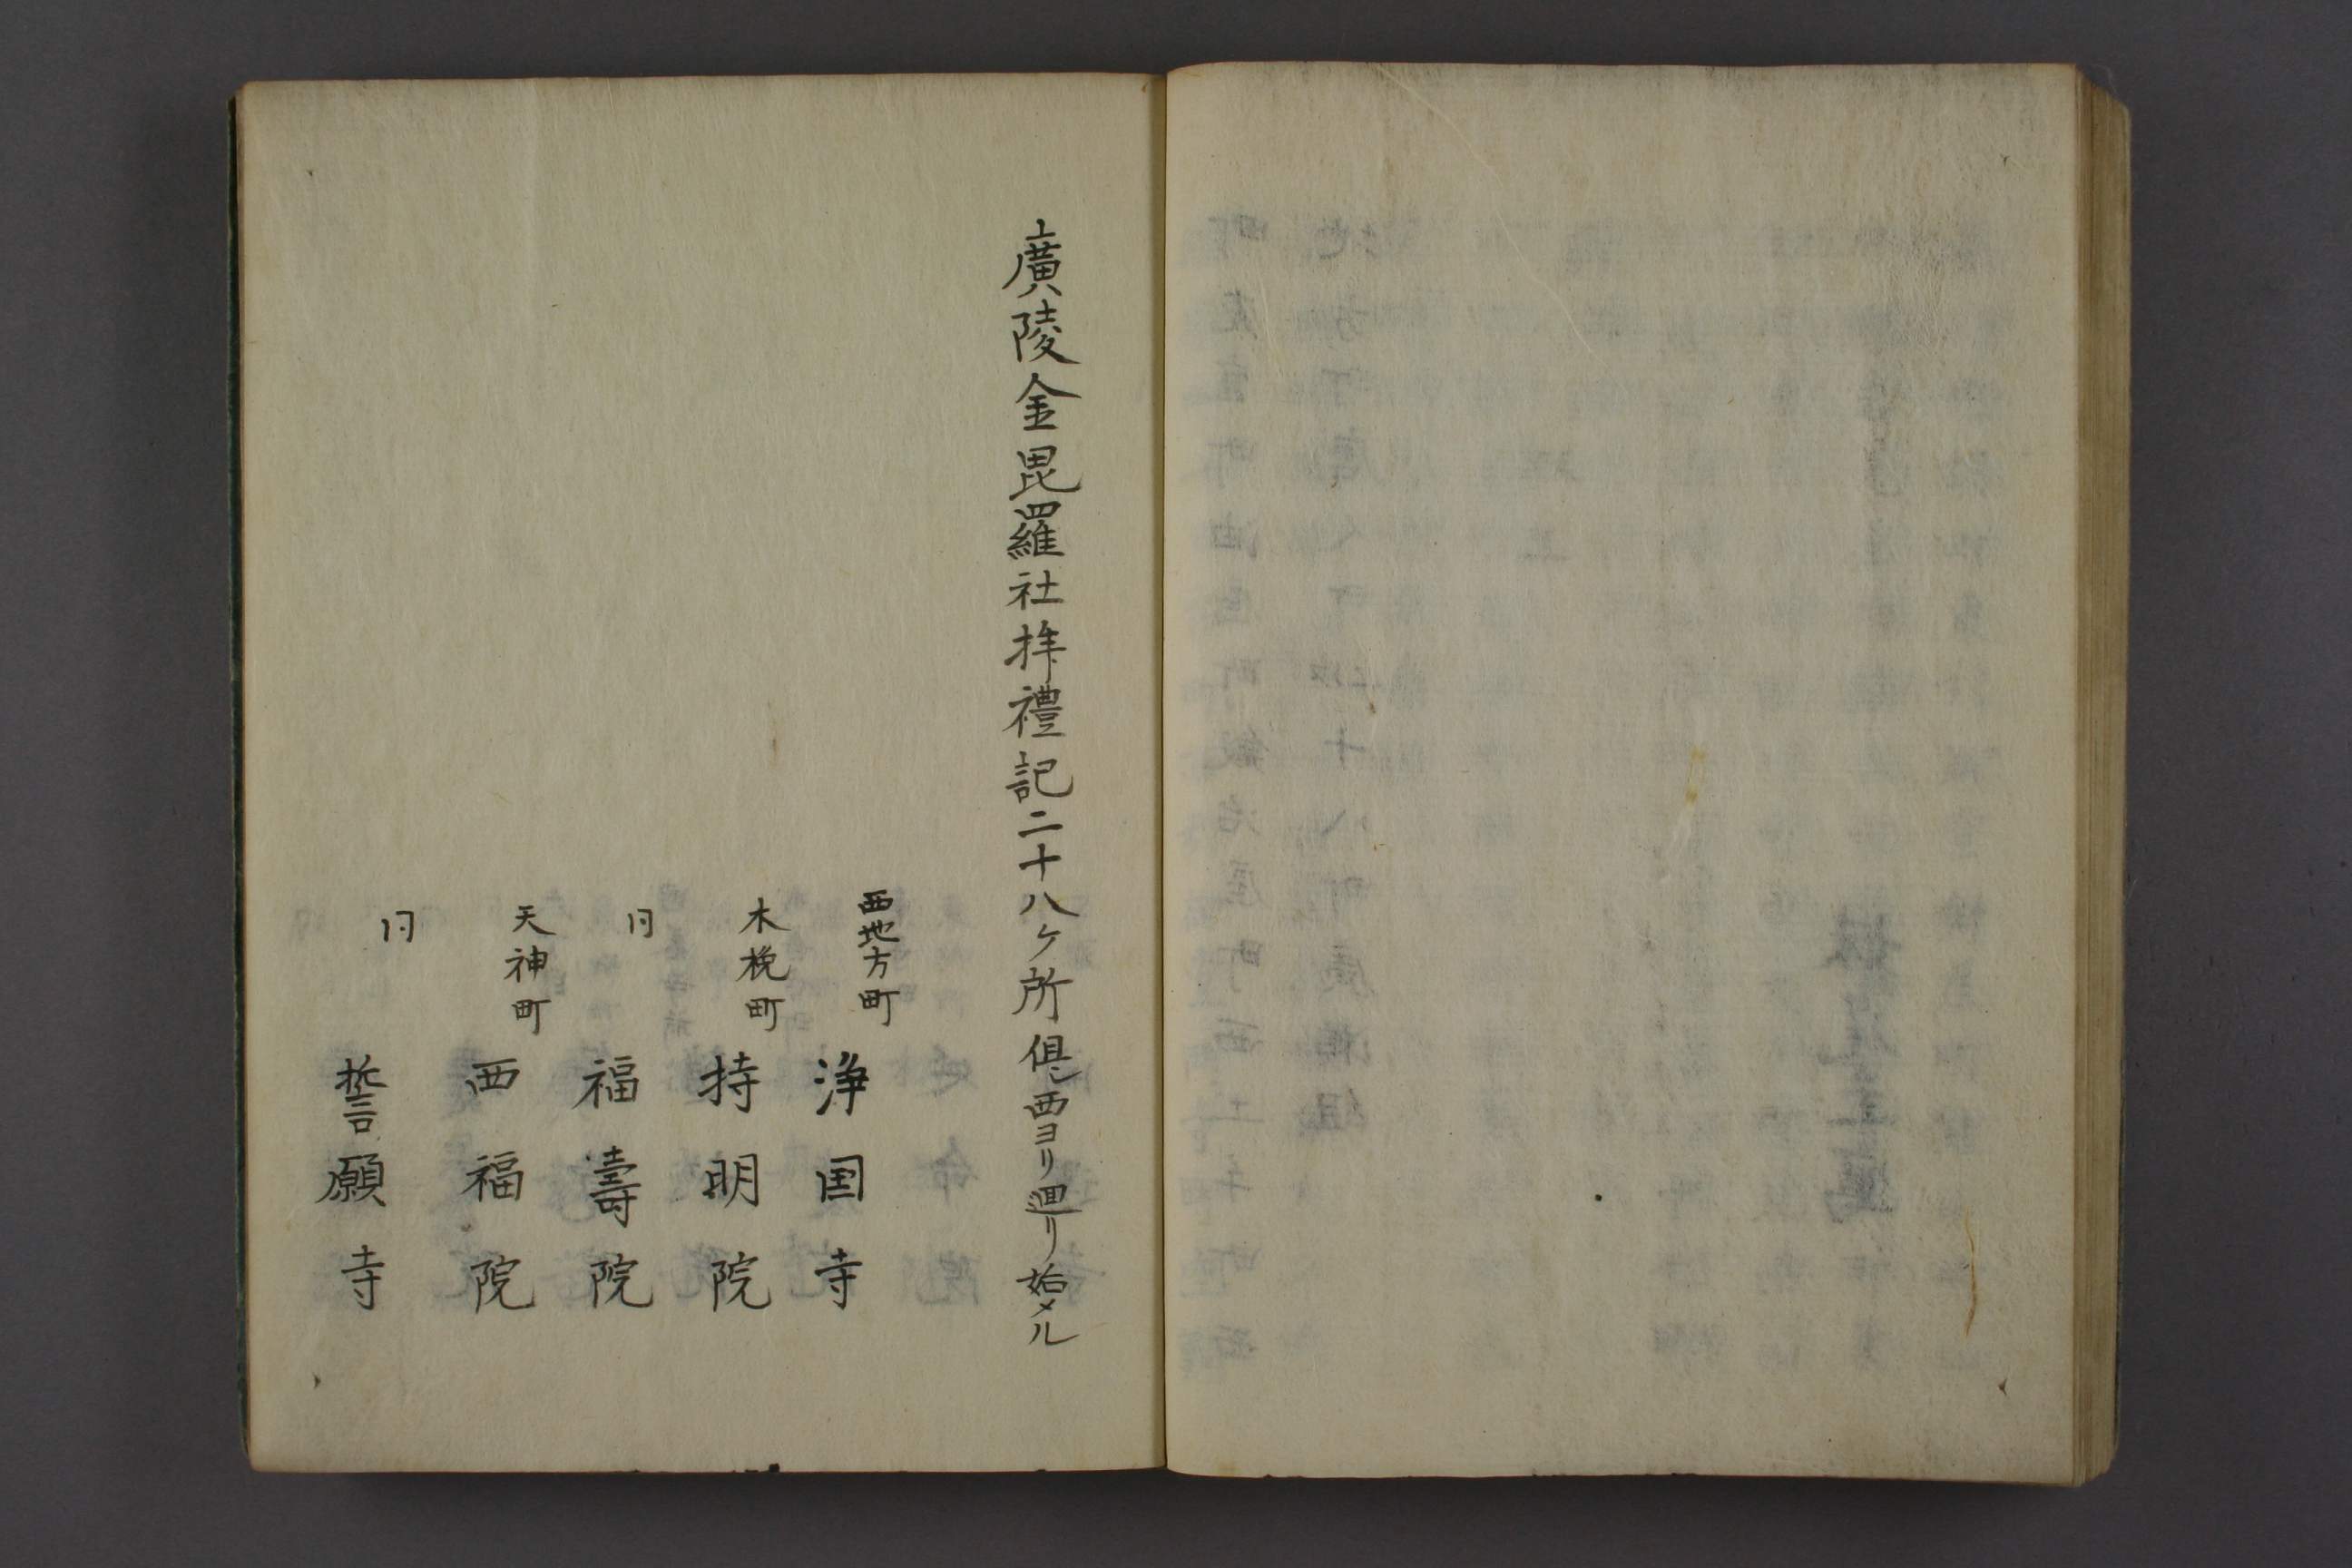 廣陵金毘羅社拝禮記二十八ケ所但シ西ヨリ廻リ始メル
西地方町 浄国寺
木挽町 持明院
同 福壽院
天神町 西福院
同 誓願寺